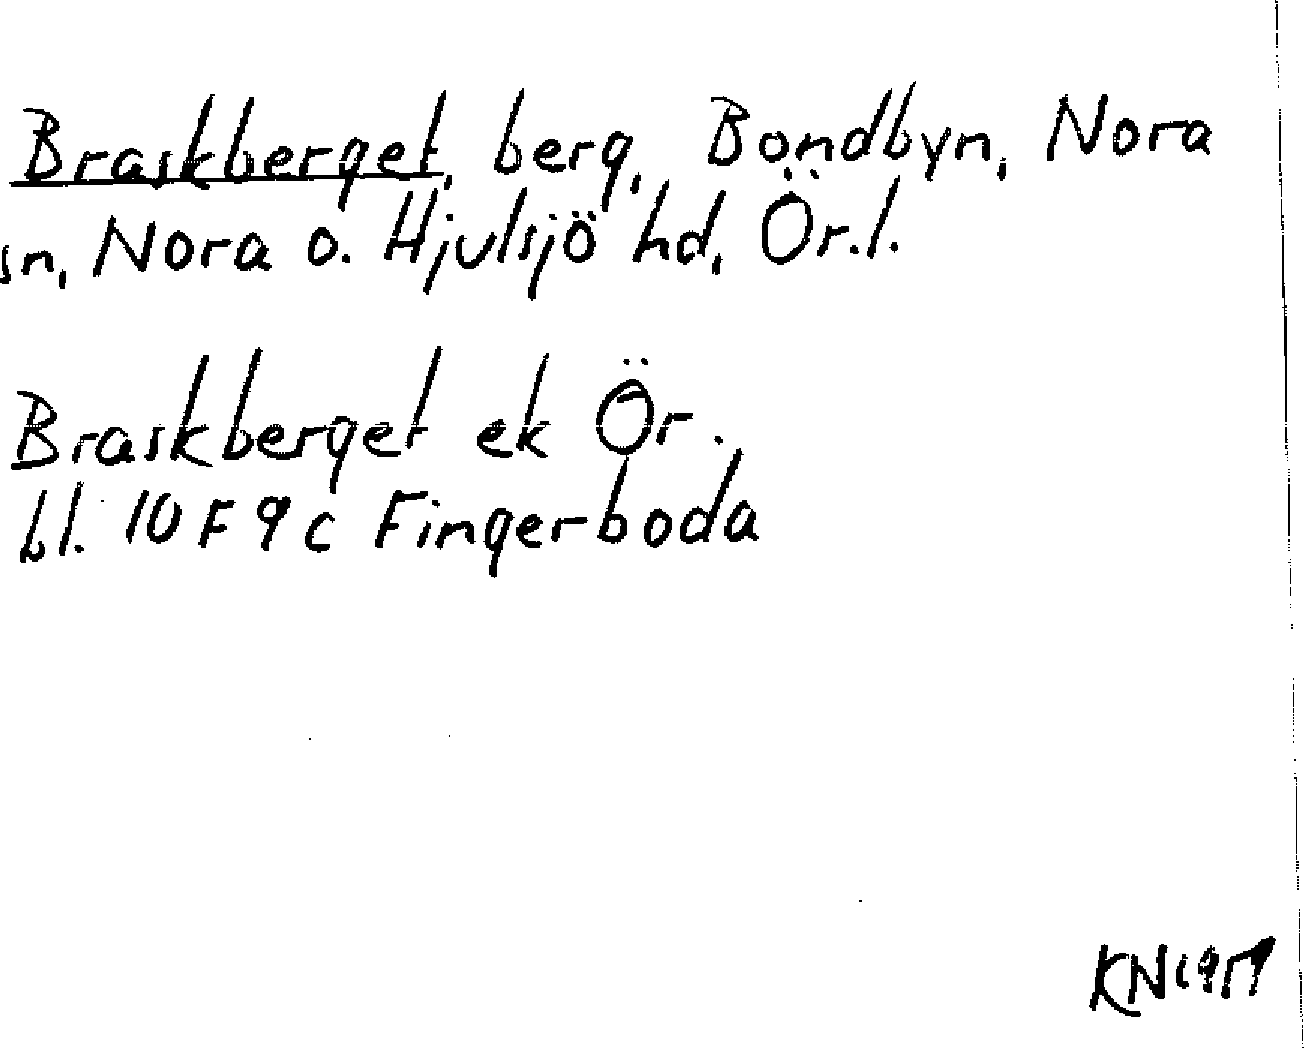 Braskberget, berg, Bondbyn, Nora
sn, Nora o. Hjulsjö hd, Ör.l.
Braskberget ek Ör.
bl. 10F 9c Fingerboda